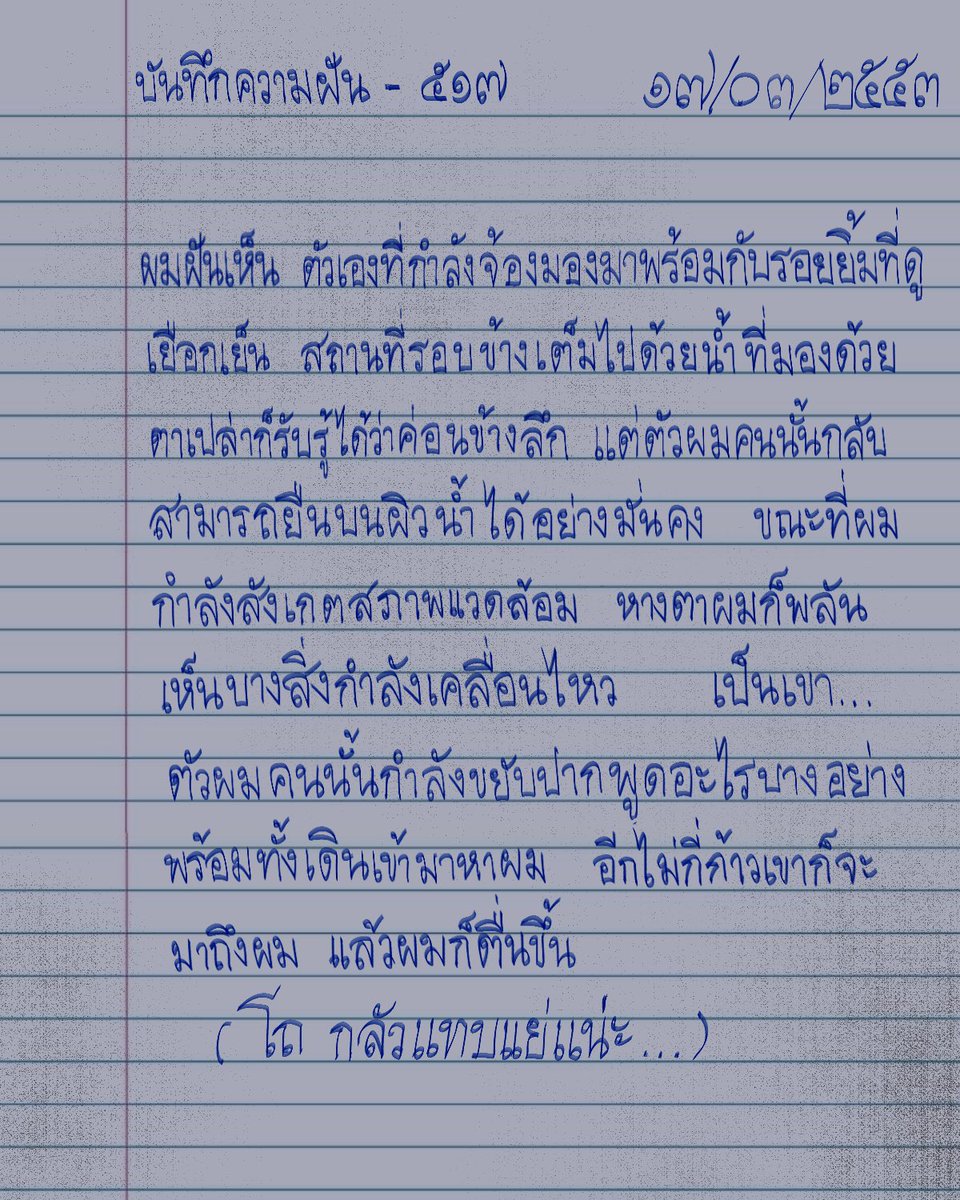 บันทึกความฝัน - ๕๑๗ ๑๗/๐๓/๒๕๕๓
ผมฝันเห็น ตัวเองที่กำลังจ้องมองมาพร้อมกับรอยยิ้มที่ดู
เยือกเย็น สถานที่รอบข้างเต็มไปด้วยน้ำที่มองด้วย
ตาเปล่าก็รับรู้ได้ว่าค่อนข้างลึก แต่ตัวผมคนนั้นกลับ
สามารถยืนบนผิวน้ำได้อย่างมั่นคง ขณะที่ผม
กำลังสังเกตสภาพแวดล้อม หางตาผมก็พลัน
เห็นบางสิ่งกำลังเคลื่อนไหว เป็นเขา...
ตัวผมคนนั้นกำลังขยับปากพูดอะไรบางอย่าง
พร้อมทั้งเดินเข้ามาหาผม อีกไม่กี่ก้าวเขาก็จะ
มาถึงผม แล้วผมก็ตื่นขึ้น
(โถ กลัวแทบแย่แน่ะ...)